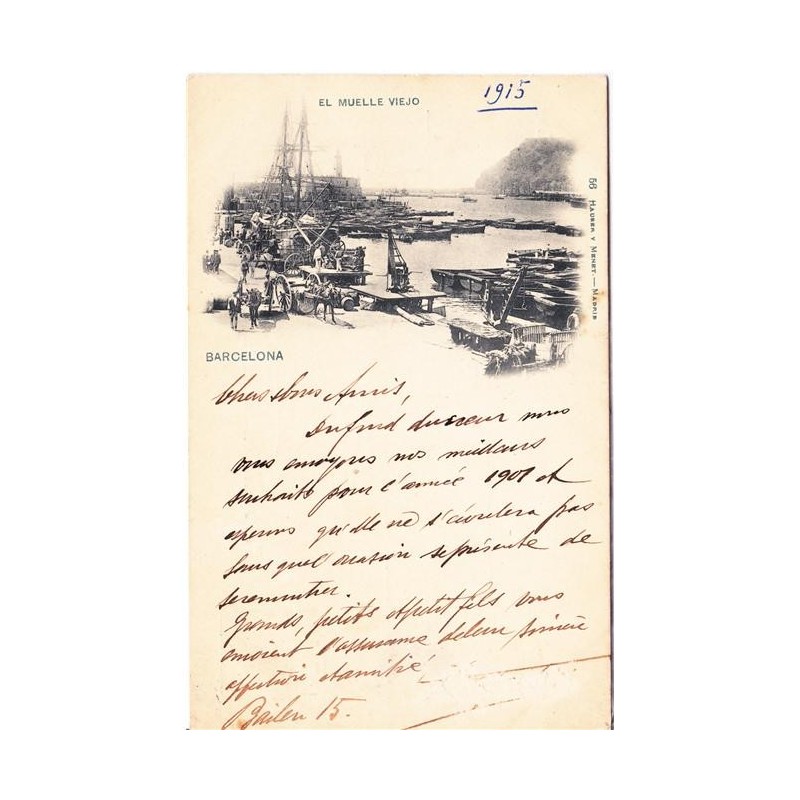 EL MUELLE VIEJO
1915
56 HAUSER Y MENET.—MADRID
BARCELONA
Chers bons Amis,
Du fond du coeur nous
vous envoyons nos meilleurs
souhaits pour l'année 1901 et
esperons qu'elle ne s'écoulera pas
sans que l'ocasion se présente de
se remontrer.
Grands, petits et petit fils vous
envoient l'assurance de leur sincère
affection et amitié
Bailen 15.